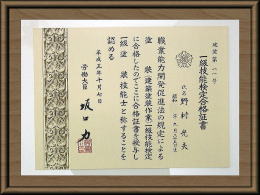 建塗第一一号
一級技能検定合格証書
氏名
野村光夫
職業能力開発促進法の規定による
塗装（建築塗装作業）一級技能検定
に合格したのでここに合格証書を授与し
一級塗装技能士と称することを
認める
平成三年十月七日
労働大臣
坂口力